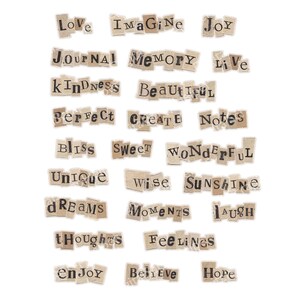 LOVE IMAGINE JOY
JOURNAL MEMORY LIVE
KINDNESS BEAUTIFUL
PERFECT CREATE NOTES
BLISS SWEET WONDERFUL
UNIQUE WISE SUNSHINE
DREAMS MOMENTS LAUGH
THOUGHTS FEELINGS
ENJOY BELIEVE HOPE